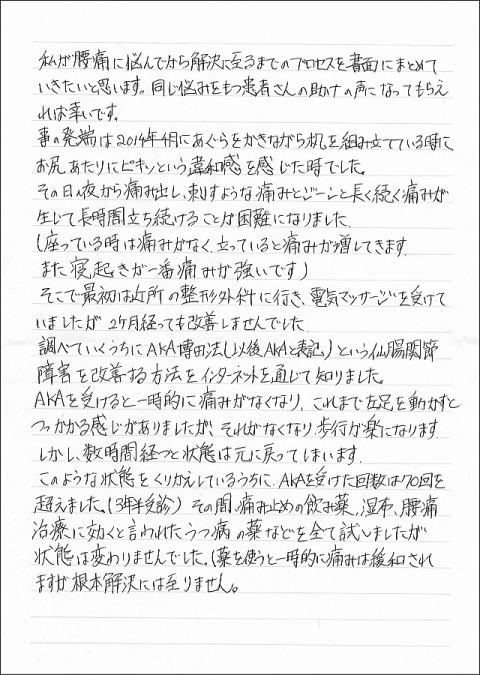 私が腰痛に悩んでから解決に至るまでのプロセスを書面にまとめて
いきたいと思います。同じ悩みをもつ患者さんの助けの声になってもらえ
れば幸いです。
事の発端は2014年4月にあぐらをかきながら机を組み立てている時に
お尻あたりにピキンという違和感を感じた時でした。
その日の夜から痛み出し、刺すような痛みとジーンと長く続く痛みが
生じて長時間立ち続けることが困難になりました.
(座っている時は痛みがなく、立っていると痛みが増してきます.
また寝起きが一番痛みが強いです)
そこで最初は近所の整形外科に行き、電気マッサージを受けて
いましたが 2ヶ月経っても改善しませんでした.
調べていくうちにAKA博田法(以後AKAと表記.)という仙腸関節
障害を改善する方法をインターネットを通じて知りました。
AKAを受けると一時的に痛みがなくなり、これまで左足を動かすと
つっかかる感じがありましたが、それがなくなり歩行が楽になります.
しかし、数時間経つと状態は元に戻ってしまいます.
このような状態をくりかえしているうちに、AKAを受けた回数は70回を
超えました。(3年半受診) その間、痛み止めの飲み薬、湿布、腰痛
治療に効くと言われたうつ病の薬などを全て試しましたが
状態は変わりませんでした。(薬を使うと一時的に痛みは緩和され
ますが根本解決には至りません。